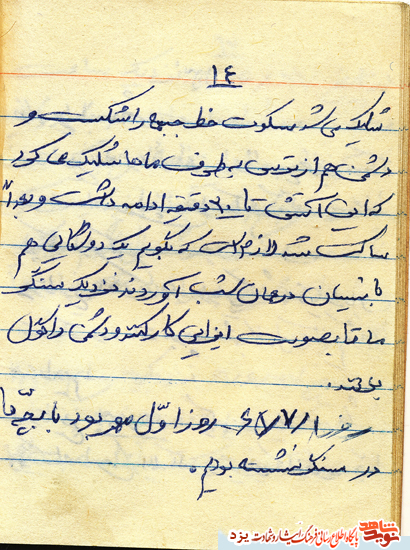 ۱۴
شلیک می‌شد سکوت خط جبهه را شکست و
دشمن هم از ترس به طرف ماها شلیک می‌کرد
که این آتش تا ۲۰ دقیقه ادامه داشت و بعداً
ساکت شد لازم است که بگویم یک دولکایی هم
تا بتنیان در همان شب آوردند نزدیک سنگر
ما تا بصورت ایذایی کار کند و دشمن را گول
بزند.
روز ۶۱/۷/۱ روز اول مهر بود با بچه‌ها
در سنگر نشسته بودیم.
نوید شاهد
پایگاه اطلاع رسانی فرهنگ ایثار و شهادت یزد